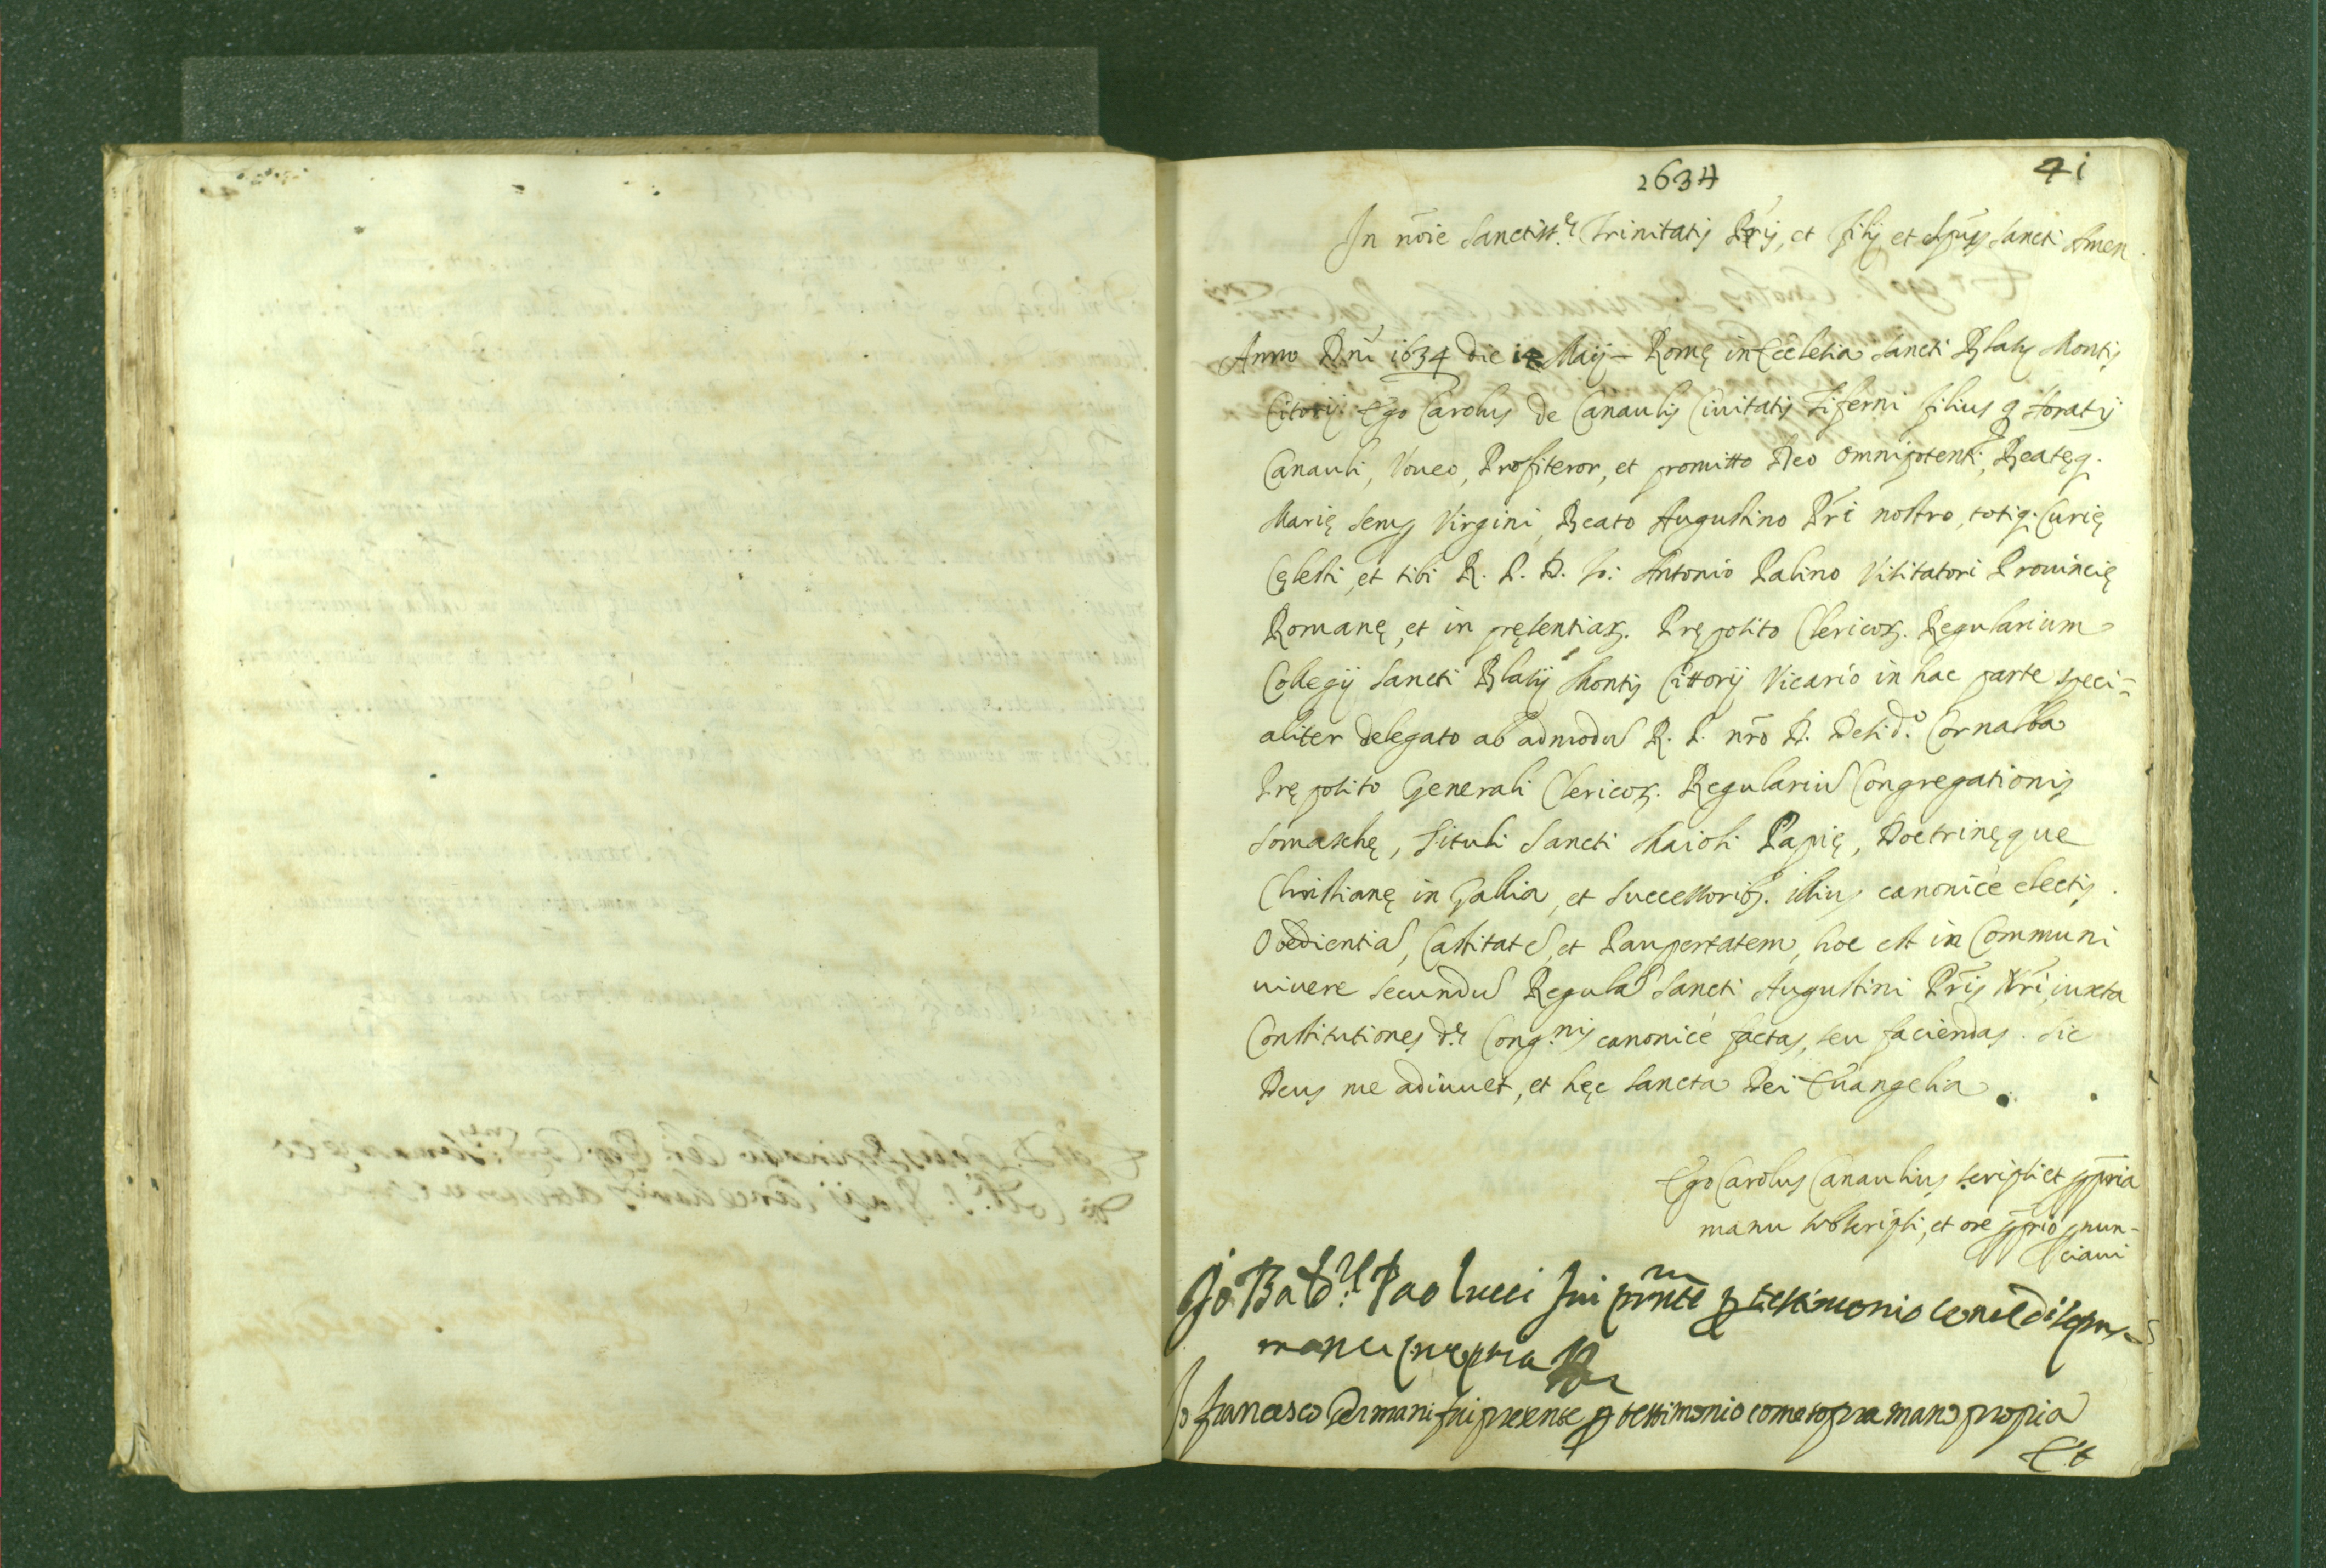 1634
41
In nõie Sanctiss.ę Trinitatis Prĩs, et Filij, et Spũs Sancti Amen.
Anno Dñi 1634 die 14 Maij – Romę in Ecclesia Sancti Blasij Montis
Citorij. Ego Carolus de Canaulis Ciuitatis Tiferni filius q. Horatij
Canauli, Voueo, Profiteror, et promitto Deo Omnipotenti, Beatęq.
Marię semp Virgini, Beato Augustino Prĩ nostro, totiq. Curię
Cęlesti, et tibi R. P. D. Io: Antonio Palino Visitatori Prouincię
Romanę, et in pręsentiar. Pręposito Clericor. Regularium
Collegij Sancti Blasij Montis Cittorij Vicario in hac parte speci=
aliter delegato ab admodũ R. P. nrõ D. Desid.º Cornalba
Pręposito Generali Clericor. Regulariũ Congregationis
Somaschę, Tituli Sancti Maioli Papię, Doctrinęque
Christianę in Gallia, et Successorib. illius canonicè electis.
Obedientiã, Castitatẽ, et Paupertatem, hoc est in Communi
uiuere secundũ Regulã Sancti Augustini Prĩs Nrĩ, iuxta
Constitutiones d.ę Cong.nis canonicè factas, seu faciendas. Sic
Deus me adiuuet, et hęc Sancta Dei Euangelia.
Ego Carolus Canaulius scripsi et ppria
manu subscripsi, et ore pprio pnun-
ciaui
Io Batt.ª Paolucci fui pnte p testimonio come di sopra
mano propria
Io francesco Germani fui presente p testimonio come sopra mano propria
Et